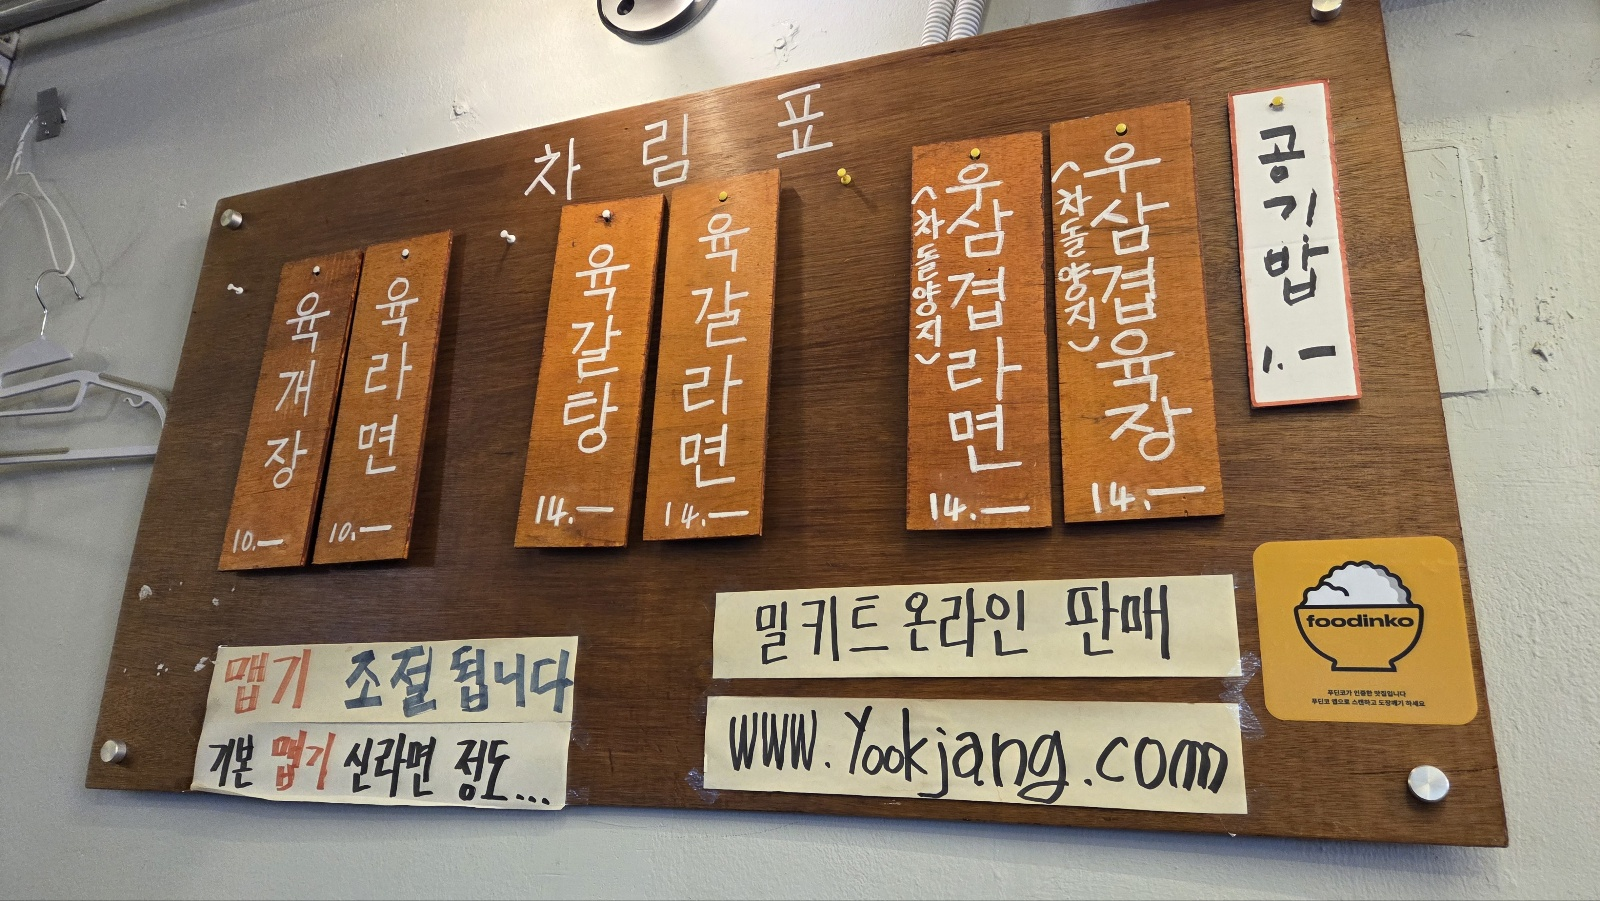 차림표
육개장
10.—
육라면
10.—
육갈탕
14.—
육갈라면
14.—
우삼겹라면
(차돌양지)
14.—
우삼겹육장
(차돌양지)
14.—
공기밥
1.—
맵기 조절 됩니다
기본 맵기 신라면 정도...
밀키트 온라인 판매
www.Yookjang.com
foodinko
푸딘코가 인증한 맛집입니다
푸딘코 앱으로 스캔하고 도장깨기 하세요